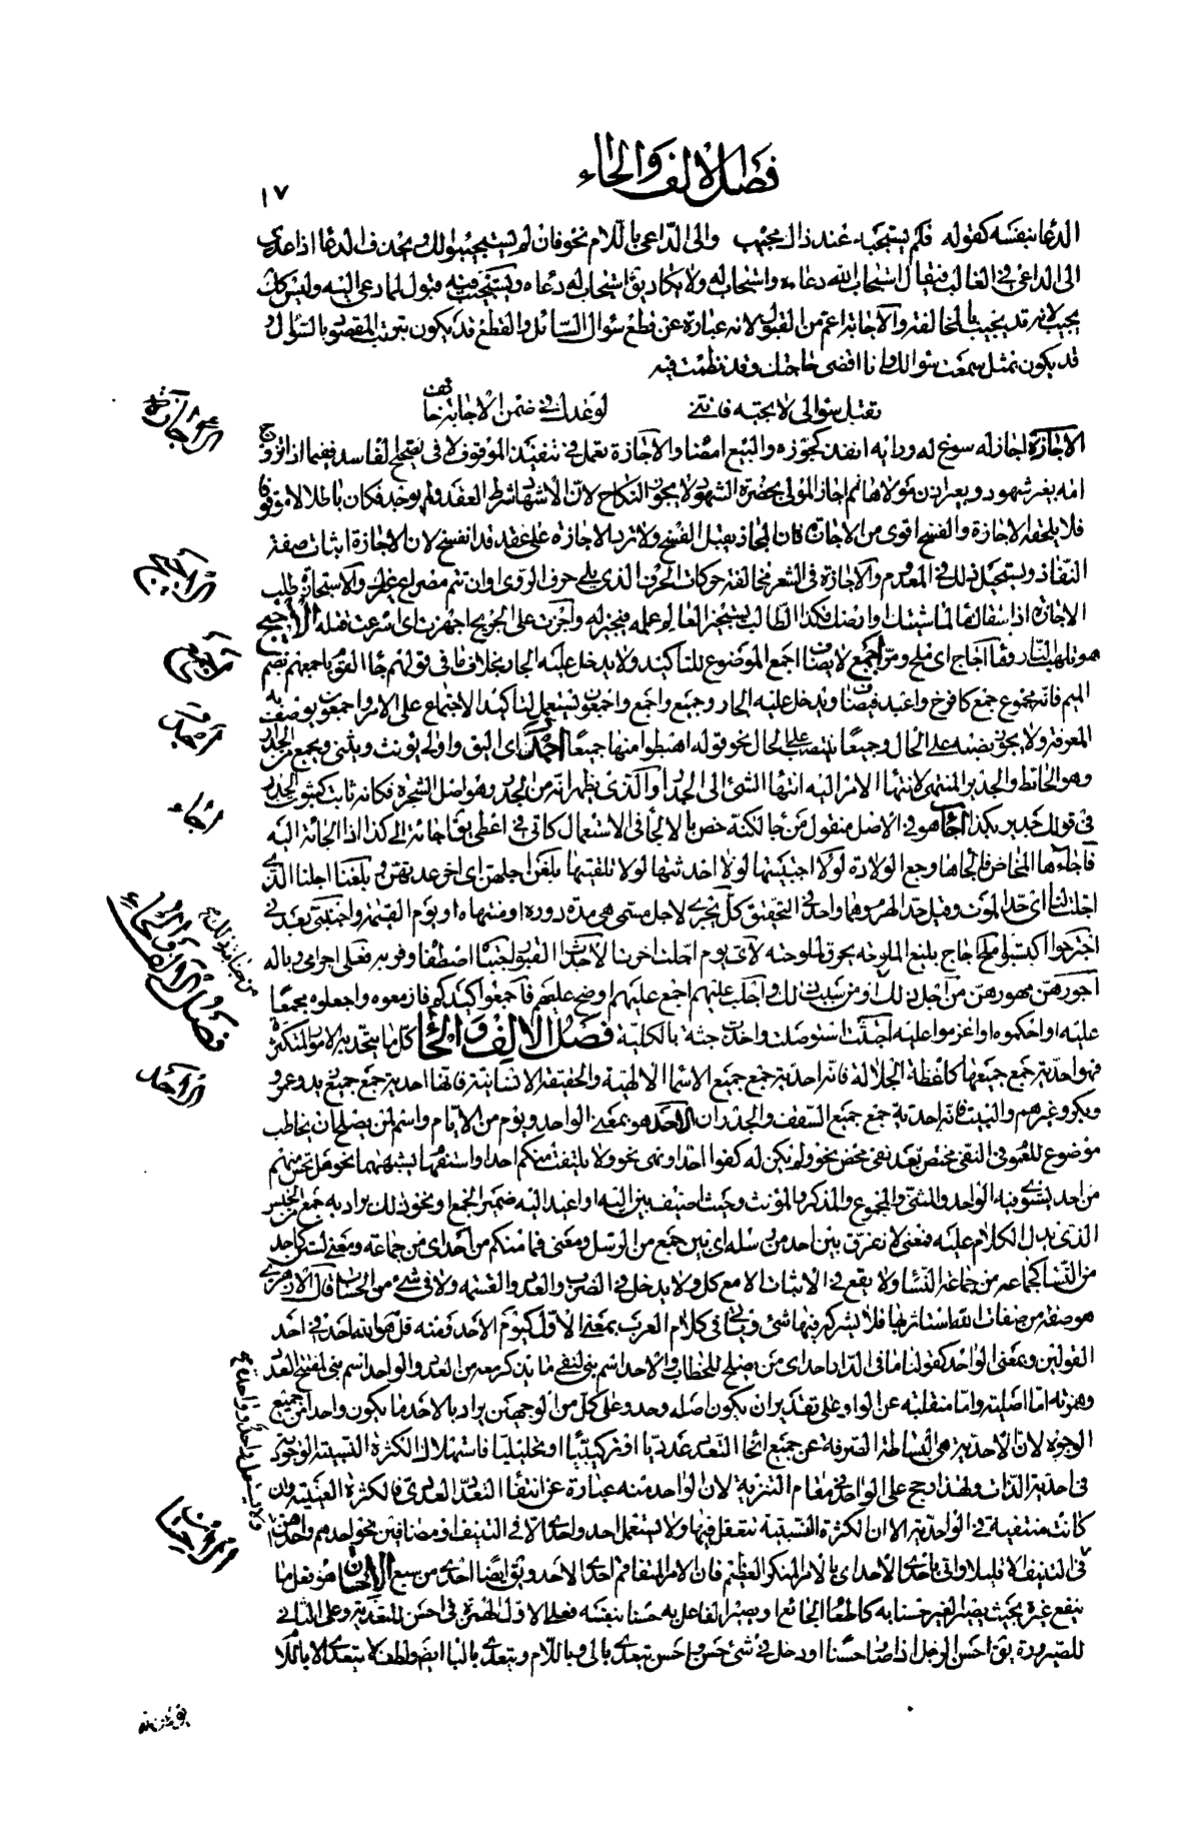 فصل الالف والحاء
١٧
الدعاء بنفسه كقوله فلم يستجبه عند ذاك مجيب والى الداعى باللام نحو فان لم يستجيبوا لك ويحذف الدعاء اذا عدى
الى الداعى فى الغالب فيقال استجاب الله دعاءه واستجاب له ولا يكاد يق استجاب له دعاه ويستجيب فيه قبول لما دعى اليه وليس كك
يجيب لانه قد يجيب بالمخالفة والاجابة اعم من القبول لانه عبارة عن قطع سؤال السائل والقطع قد يكون بترتب المقصود بالسؤال و
قد يكون بمثل سمعت سؤالك وانا اقضى حاجتك وقد نظمت فيه
تقبل سؤالى لا تجبه فاننى لوعدك فى ضمن الاجابة خائف
الاجازة اجاز له سوغ له ورايه انفذه كجوزه والبيع امضاه والاجازة تعمل فى تنفيذ الموقوف لا فى تصحيح الفاسد فيما اذا تزوج
امة بغير شهود وبغير اذن مولاها ثم اجاز المولى بحضرة الشهود لا يجوز النكاح لان الاشهاد شرط العقد ولم يوجد فكان باطلا لا موقوفا
فلا يلحقه الاجازة والفسخ اقوى من الاجازة فان المجاز يقبل الفسخ ولا ترد الاجازة على عقد قد انفسخ لان الاجازة اثبات صفة
النفاذ ويستحيل ذلك فى المعدوم والاجازة فى الشعر مخالفة حركات الحرف الذى يلى حرف الروى او ان تتم مصراع غيرك والاستجازة طلب
الاجازة اذا سقاك ماء لماشيتك او ارضك فكذا الطالب يستجيز العالم علمه فيجيزه له واجزت على الجريح اجهزت اى اسرعت قتله الاجيج
هو تلهب النار وماء اجاج اى ملح ومر اجمع لا يضاف اجمع الموضوع للتاكيد ولا يدخل عليه الجار بخلاف ما فى قولهم جاء القوم باجمعهم بضم
الميم فانه مجموع جمع كافرخ واعبد فيضاف ويدخل عليه الجار وجميع واجمع واجمعون تستعمل لتاكيد الاجتماع على الامر واجمعون يوصف به
المعرفة ولا يجوز نصبه على الحال وجميعا ينتصب على الحال نحو قوله اهبطوا منها جميعا اجدر اى اليق واولى يؤنث ويثنى ويجمع من الجدار
وهو الحائط والجدير المنتهى لانتهاء الامر اليه انتهاء الشئ الى الجدار والذى يظهر انه من الجدر وهو اصل الشجرة فكانه ثابت كثبوت الجدر
فى قولك جدير بكذا اجاء هو فى الاصل منقول من جاء لكنه خص بالالجاء فى الاستعمال كاتى فى اعطى يق اجاءته الى كذا اذا الجاته اليه
فاجاءها المخاض فالجاها وجع الولادة لولا اجتبيتها لولا احدثتها لولا تلقيتها بلغن اجلهن اى اخر عدتهن وبلغنا اجلنا الذى
اجلت لنا اى حد الموت وقيل حد الهرم وهما واحد فى التحقيق كل يجرى لاجل مسمى هى مدة دوره او منتهاه او يوم القيمة
اجترحوا اكتسبوا ملح اجاج بليغ الملوحة يحرق لملوحته لاى يوم اجلت اخرت الاجداث القبور اجتباه اصطفاه وقربه فعلى اجرامى وباله
اجورهن مهورهن من اجل ذلك او من سبب ذلك واجلب عليهم اجمع عليهم او صح عليهم فاجمعوا كيدكم فازمعوه واجعلوه مجمعا
عليه او احكموه او اعزموا عليه اجتثت استوصلت واخذت جثته بالكلية فصل الالف والحاء كل ما يتحد به الامور المتكثرة
فهو احدية جمع جميعها كلفظة الجلالة فانه احدية جمع جميع الاسماء الالهية والحقيقة الانسانية فانها احدية جمع جميع زيد وعمرو
وبكر وغيرهم والبيت فانه احدية جمع جميع السقف والجدران الاحد هو بمعنى الواحد ويوم من الايام واسم لمن يصلح ان يخاطب
موضوع للعموم فى النفى مختص بعد نفى محض نحو ولم يكن له كفوا احد او نهى نحو ولا يلتفت منكم احد او استفهام يشبههما نحو هل تحس منهم
من احد يستوى فيه الواحد والمثنى والمجموع والمذكر والمؤنث وحيث اضيف بين اليه او اعيد اليه ضمير الجمع او نحو ذلك يراد به جمع من الجنس
الذى يدل الكلام عليه فمعنى لا نفرق بين احد من رسله اى بين جمع من الرسل ومعنى فما منكم من احد اى من جماعة ومعنى لستن كاحد
من النساء كجماعة من جماعات النساء ولا يقع فى الاثبات الا مع كل ولا يدخل فى الضرب والعدد والقسمة ولا فى شئ من الحساب قال الازهرى
هو صفة من صفات الله استاثر بها فلا يشركه فيها شئ وياتى فى كلام العرب بمعنى الاول كيوم الاحد ومنه قل هو الله احد فى احد
القولين وبمعنى الواحد كقولنا ما فى الدار احد اى من يصلح للخطاب والاحد اسم بنى لنفى ما يذكر معه من العدد والواحد اسم بنى لمفتتح العدد
وهمزته اما اصلية واما منقلبة عن الواو على تقدير ان يكون اصله وحد وعلى كل من الوجهين يراد بالاحد ما يكون واحدا من جميع
الوجوه لان الاحدية هى البساطة الصرفة عن جميع انحاء التعدد عدديا او تركيبيا او تحليليا فاستهلاك الكثرة النسبية الوجودية
فى احدية الذات ولهذا رجح على الواحد فى مقام التنزيه لان الواحد منه عبارة عن انتفاء التعدد العددى فالكثرة العينية وان
كانت منتفية فى الواحدية الا ان الكثرة النسبية تتعقل فيها ولا يستعمل احد واحدى الا فى التنييف او مضافين نحو احدهم واحديهن
فى التنييف الا قليلا واتى باحدى الاحد اى بالامر المنكر العظيم فان الامر المتفاقم احدى الاحد ويق ايضا احدى من سبع الاحسان هو فعل ما
ينفع غيره بحيث يصير الغير حسنا به كاطعام الجائع او يصير الفاعل به حسنا بنفسه فعلى الاول الهمزة فى احسن للتعدية وعلى الثانى
للصيرورة يق احسن الرجل اذا صار حسنا او دخل فى شئ حسن واحسن يتعدى بالى وباللام ويتعدى بالباء ايضا ولطف لا يتعدى الا باللام
الاجازة
الاجيج
اجمع
اجدر
اجاء
فصل الالف والحاء
الاحد
الاحسان